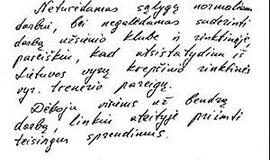 Neturėdamas sąlygų normaliam
darbui, bei negalėdamas suderinti
darbą užsienio klube ir rinktinėje
pareiškiu, kad atsistatydinu iš
Lietuvos vyrų krepšinio rinktinės
vyr. trenerio pareigų.
Dėkoju visiems už bendrą
darbą, linkiu ateityje priimti
teisingus sprendimus.